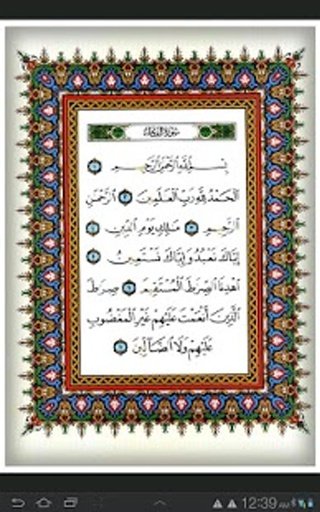 سورة الفاتحة
بِسْمِ ٱللَّهِ ٱلرَّحْمَٰنِ ٱلرَّحِيمِ ١
ٱلْحَمْدُ لِلَّهِ رَبِّ ٱلْعَٰلَمِينَ ٢ ٱلرَّحْمَٰنِ
ٱلرَّحِيمِ ٣ مَٰلِكِ يَوْمِ ٱلدِّينِ ٤
إِيَّاكَ نَعْبُدُ وَإِيَّاكَ نَسْتَعِينُ ٥
ٱهْدِنَا ٱلصِّرَٰطَ ٱلْمُسْتَقِيمَ ٦ صِرَٰطَ
ٱلَّذِينَ أَنْعَمْتَ عَلَيْهِمْ غَيْرِ ٱلْمَغْضُوبِ
عَلَيْهِمْ وَلَا ٱلضَّآلِّينَ ٧
12:39 AM